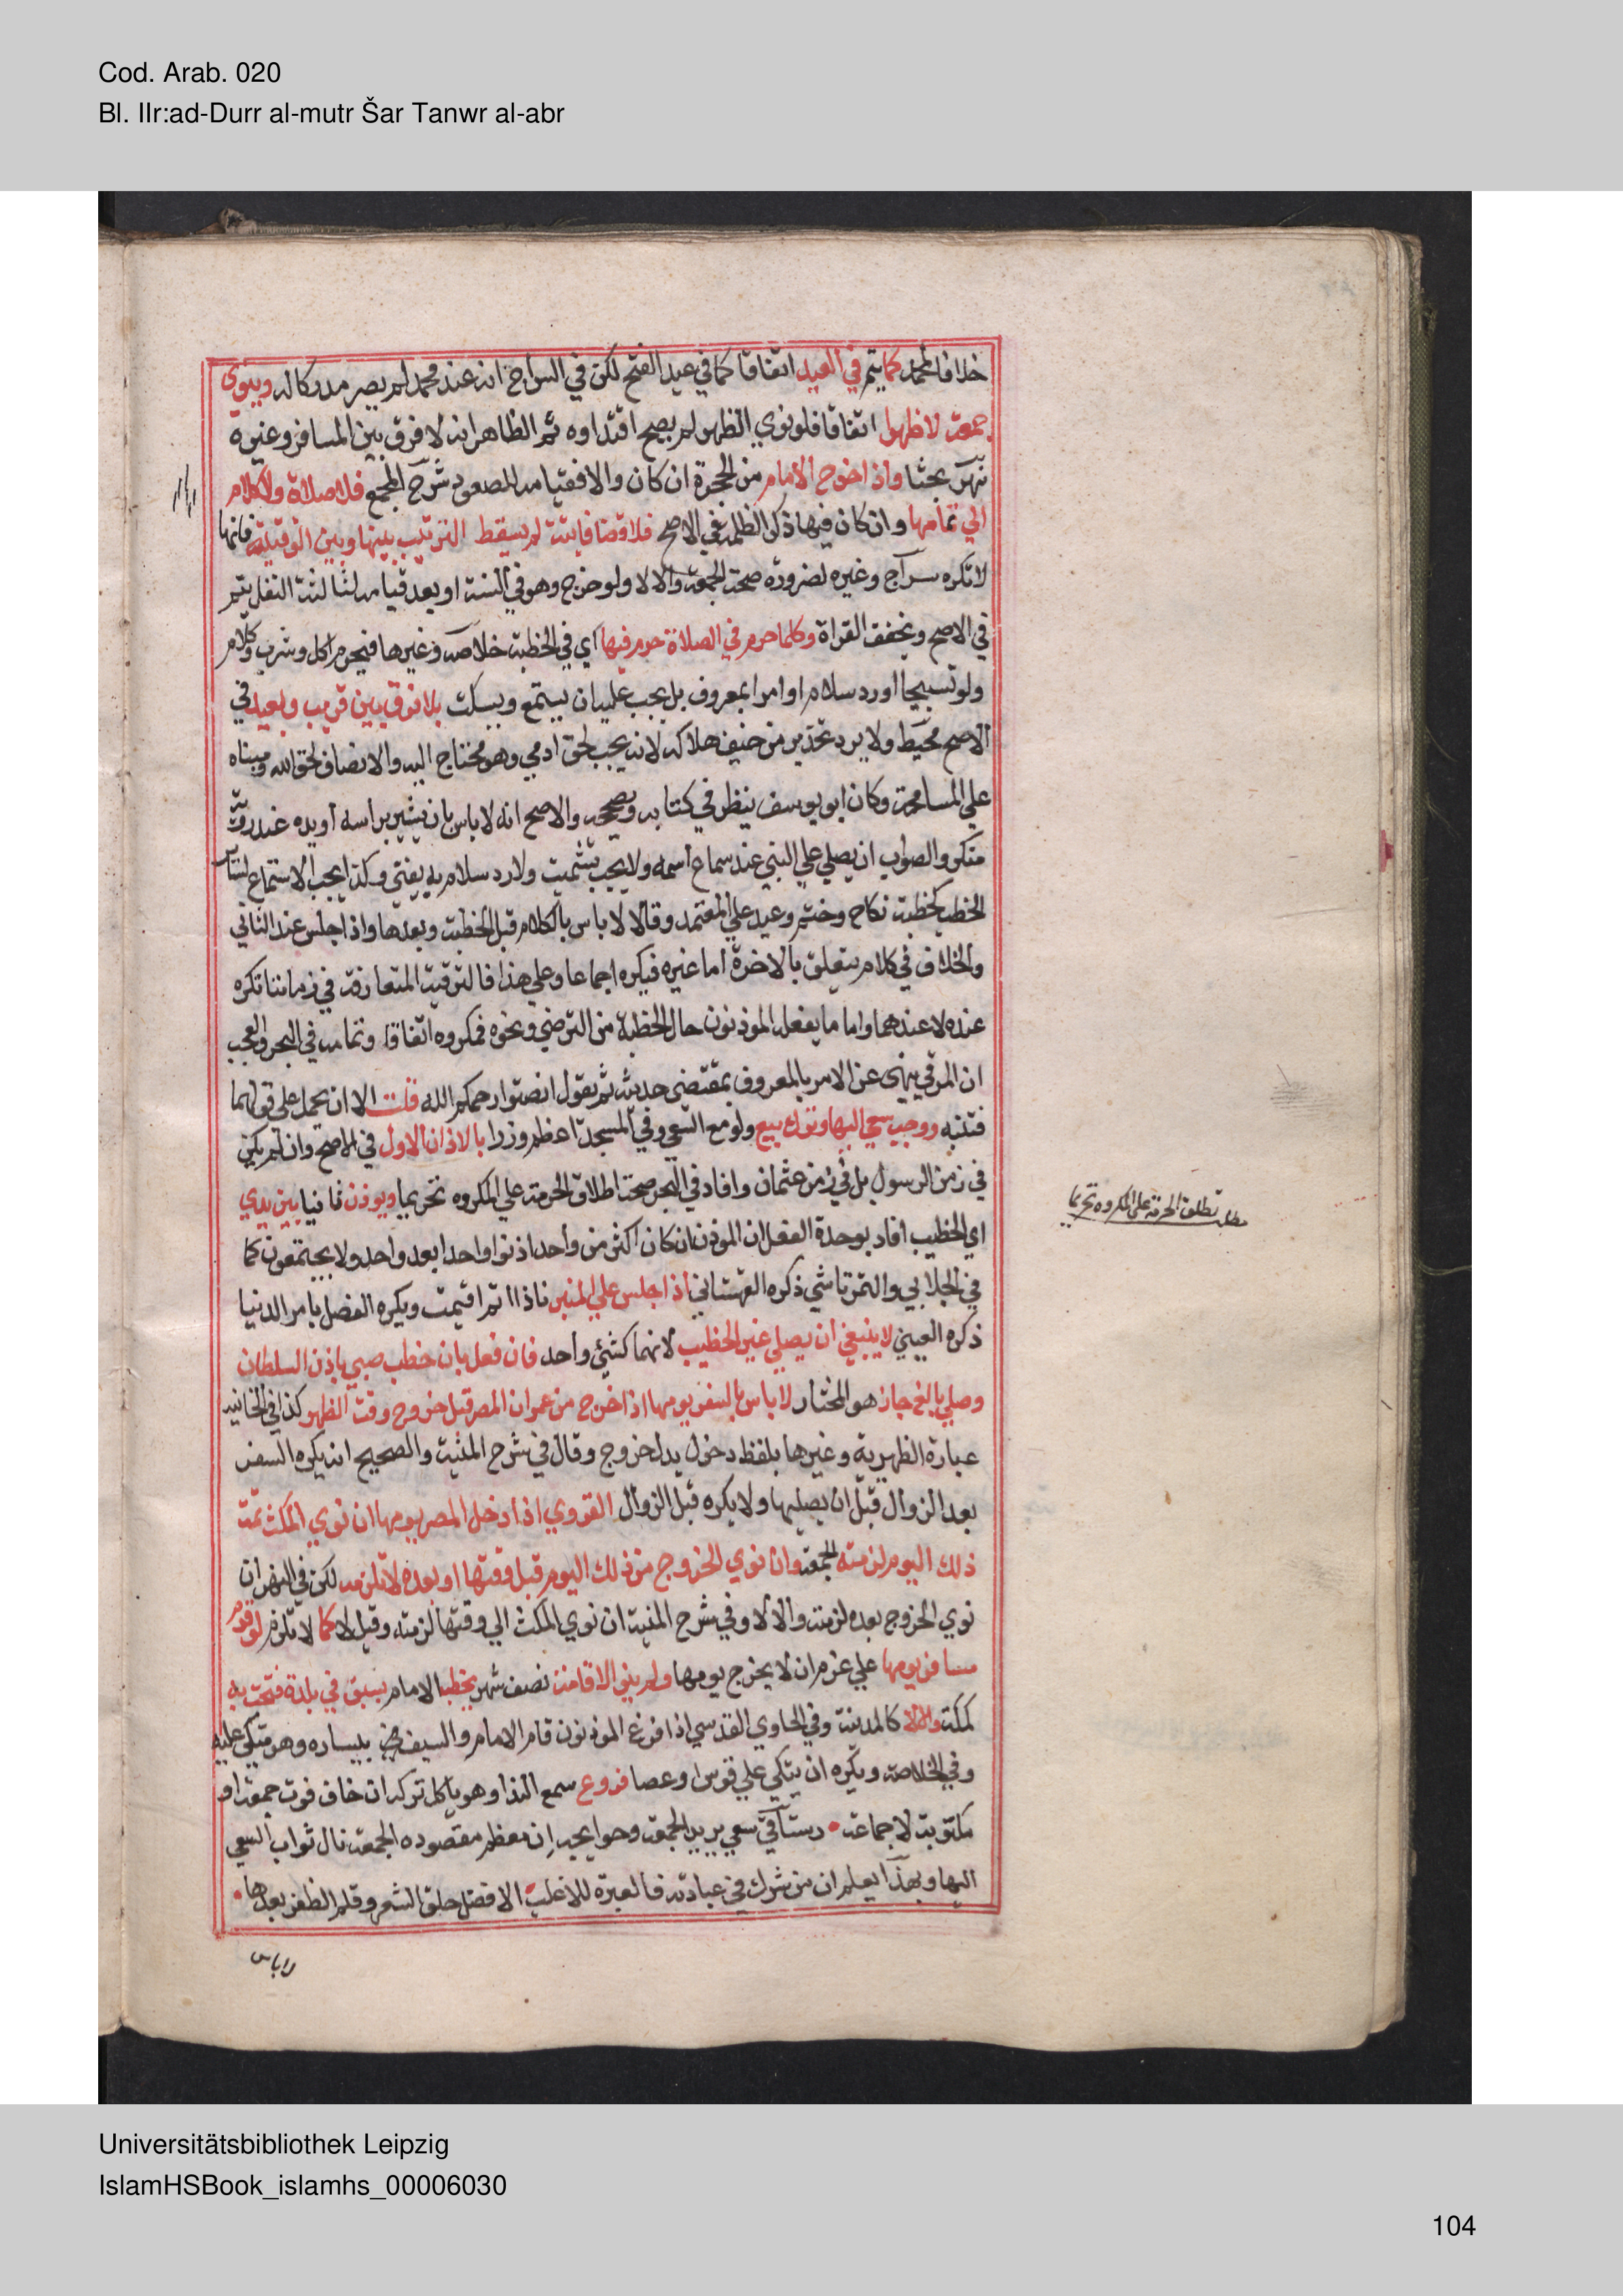 Cod. Arab. 020
Bl. IIr:ad-Durr al-mutr Šar Tanwr al-abr
خلافا لمحمد كما يتم في العيد اتفاقا كما في عيد الفتح لكن في السراج انه عند محمد لم يصر مدركا له وينوي
جمعة لا ظهرا اتفاقا فلو نوي الظهر لم يصح اقتداوه ثم الظاهر انه لا فرق بين المسافر وغيره
نهر بحثا واذا خرج الامام من الحجرة ان كان والا فقيامه للصعود شرح المجمع فلا صلاة ولا كلام
الي تمامها وان كان فيها ذكر الظلمة في الاصح فلا قضا فايتة لم يسقط الترتيب بينها وبين الوقتية فانها
لا تكره سراج وغيره لضرورة صحة الجمعة والا لا ولو خرج وهو في السنة او بعد قيامه لثالثة النفل يتم
في الاصح ويخفف القراة وكلما حرم في الصلاة حرم فيها اي في الخطبة خلاصة وغيرها فيحرم اكل وشرب وكلام
ولو تسبيحا او رد سلام او امرا بمعروف بل يجب عليه ان يستمع ويسكت بلا فرق بين قريب وبعيد في
الاصح محيط ولا يرد تحذير من خيف هلاكه لانه يجب لحق ادمي وهو محتاج اليه والانصاف لحق الله ومبناه
علي المسامحة وكان ابو يوسف ينظر في كتابه ويصححه والاصح انه لا باس بان يشير براسه او يده عند روية
منكر والصواب ان يصلي علي النبي عند سماع اسمه ولا يجب تشميت ولا رد سلام به يفتي وكذا يجب الاستماع لساير
الخطب كخطبة نكاح وختم وعيد علي المعتمد وقالا لا باس بالكلام قبل الخطبة وبعدها واذا جلس عند الثاني
والخلاف في كلام يتعلق بالاخرة اما غيره فيكره اجماعا وعلي هذا فالترقية المتعارفة في زماننا تكره
عنده لا عندهما واما ما يفعله الموذنون حال الخطبة من الترضي ونحوه فمكروه اتفاقا وتمامه في البحر والعجب
ان المرقي ينهى عن الامر بالمعروف بمقتضى حديثه ثم يقول انصتوا رحمكم الله قلت الا ان يحمل على قولهما
فتنبه ووجب سعي اليها وترك بيع ولو مع السعي وفي المسجد اعظم وزرا بالاذان الاول في الاصح وان لم يكن
في زمن الرسول بل في زمن عثمان وافاد في البحر صحة اطلاق الحرمة علي المكروه تحريما ويوذن ثانيا بين يدي
اي الخطيب افاد بوحدة الفعل ان الموذن ان كان اكثر من واحد اذنوا واحدا بعد واحد ولا يجتمعون كما
في الجلابي والتمرتاشي ذكره القهستاني اذا جلس علي المنبر فاذا اتم اقيمت ويكره الفصل بامر الدنيا
ذكره العيني لا ينبغي ان يصلي غير الخطيب لانهما كشئي واحد فان فعل بان خطب صبي باذن السلطان
وصلي بالغ جاز هو المختار لا باس بالسفر يومها اذا خرج من عمران المصر قبل خروج وقت الظهر كذا في الخانيه
عبارة الظهيرية وغيرها بلفظ دخول بدل خروج وقال في شرح المنية والصحيح انه يكره السفر
بعد الزوال قبل ان يصليها ولا يكره قبل الزوال القروي اذا دخل المصر يومها ان نوي المكث ثمة
ذلك اليوم لزمته الجمعة وان نوي الخروج من ذلك اليوم قبل وقتها او بعده لا تلزمه لكن في النهر ان
نوي الخروج بعده لزمته والا لا وفي شرح المنية ان نوي المكث الي وقتها لزمته وقيل لا كما لا تلزم لو قدم
مسافر يومها علي عزم ان لا يخرج يومها ولم ينو الاقامة نصف شهر يخطب الامام بسيف في بلدة فتحت به
كمكة والا لا كالمدينة وفي الحاوي القدسي اذا فرغ الموذنون قام الامام والسيف في بيساره وهو متكي عليه
وفي الخلاصة ويكره ان يتكي علي قوس او عصا فروع سمع الندا وهو ياكل تركه ان خاف فوت جمعة او
مكتوبة لا جماعة • رستاقي سعي يريد الجمعة وحوايجه ان معظم مقصوده الجمعة نال ثواب السعي
اليها وبهذا يعلم ان من شرك في عبادته فالعبرة للاغلب الافضل حلق الشعر وقلم الظفر بعدها •
لا باس
مطلب تطلق الحرمة على المكروه تحريما
Universitätsbibliothek Leipzig
IslamHSBook_islamhs_00006030
104